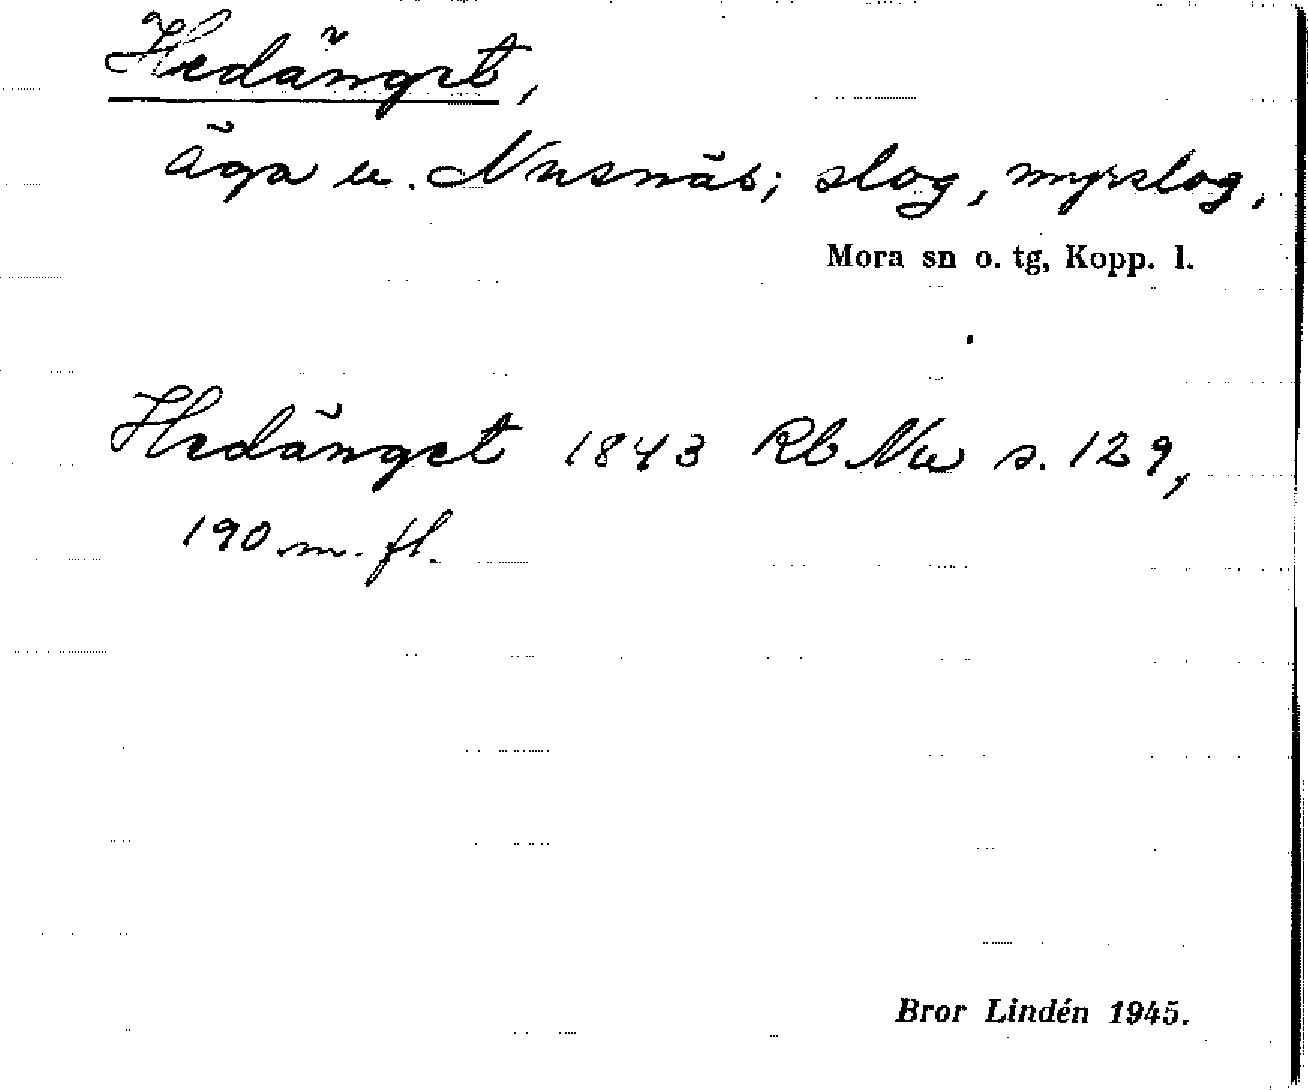 Hedänget,
äga u. Nusnäs; slog, myrslog.
Mora sn o. tg, Kopp. l.
Hedänget 1843 Rb Nu s. 129,
190 m. fl.
Bror Lindén 1945.